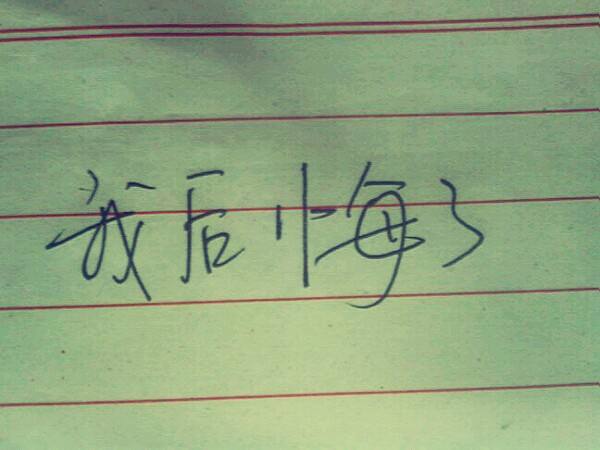 我后悔了